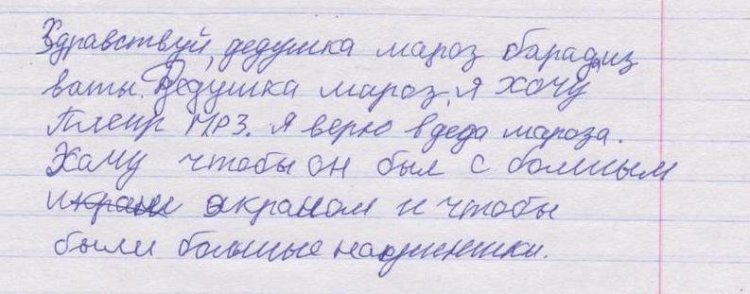 Здравствуй, дедушка мароз барада из
ваты. Дедушка мароз. я хочу
Плеир МР3. я верю в деда мароза.
Хачу чтобы он был с болшым
икране экраном и чтобы
были большые наушники.